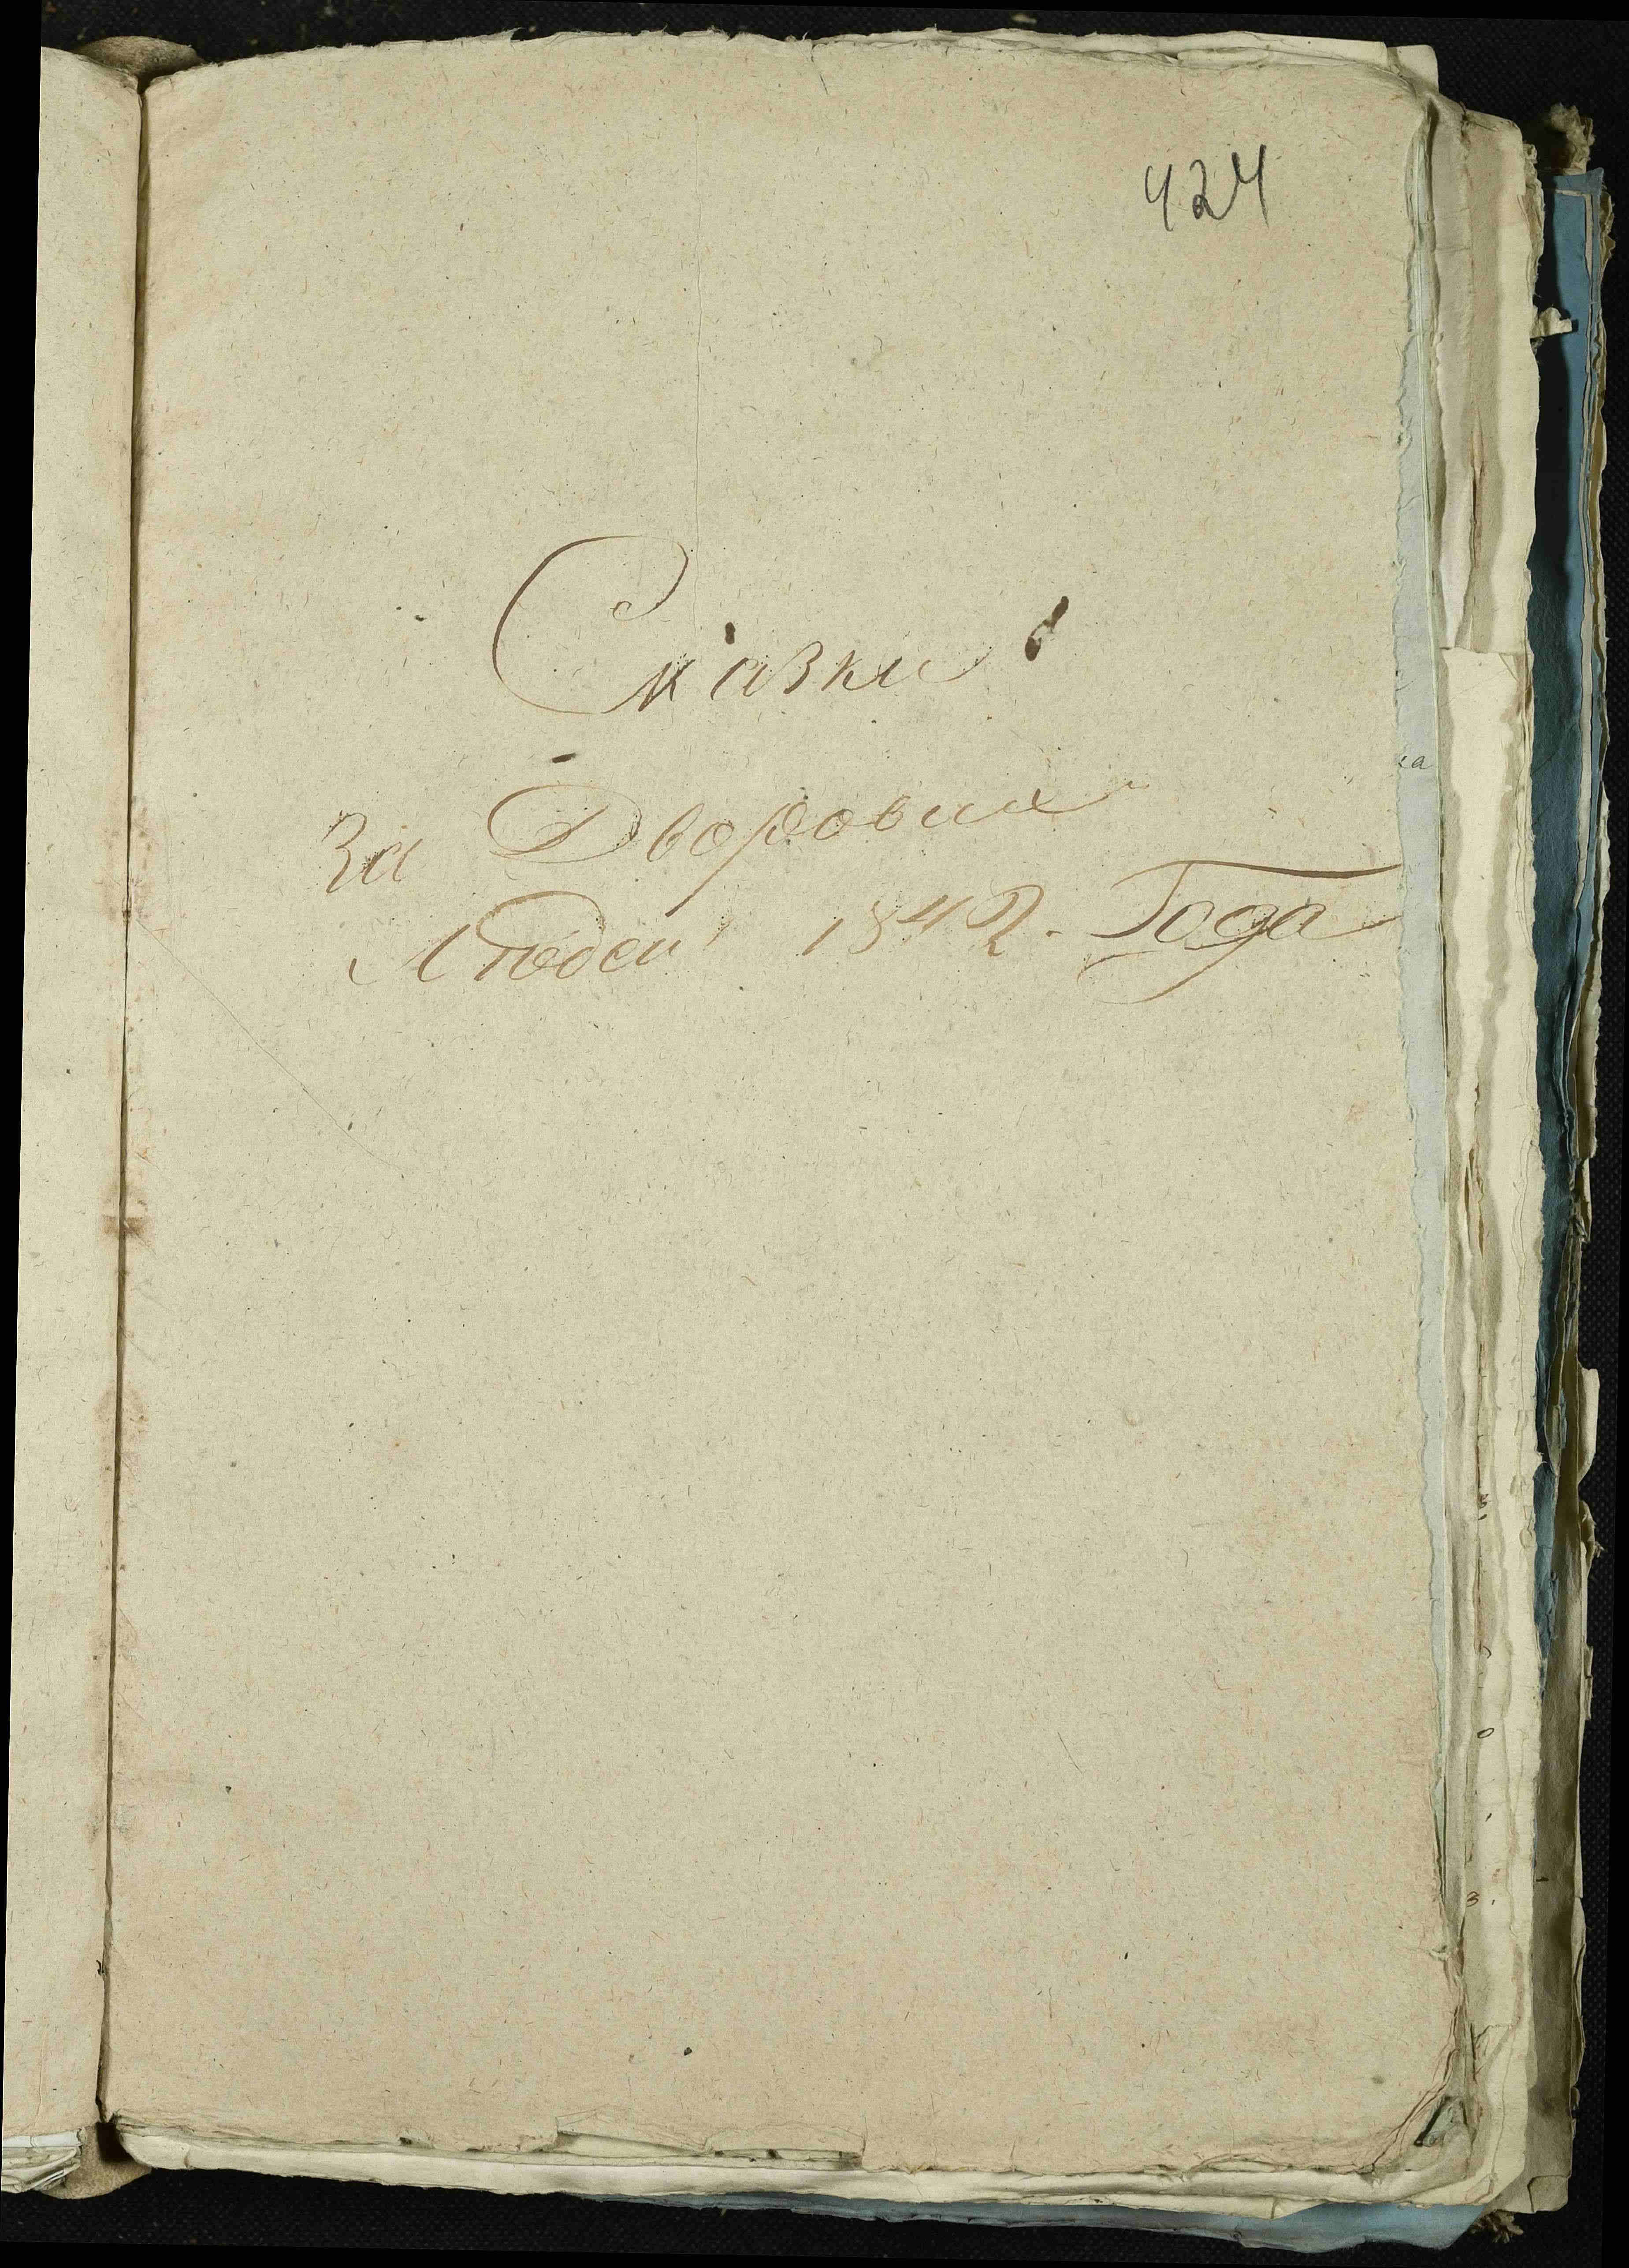 424
Сказки
За Дворовых
Людей 1842. Года
ка